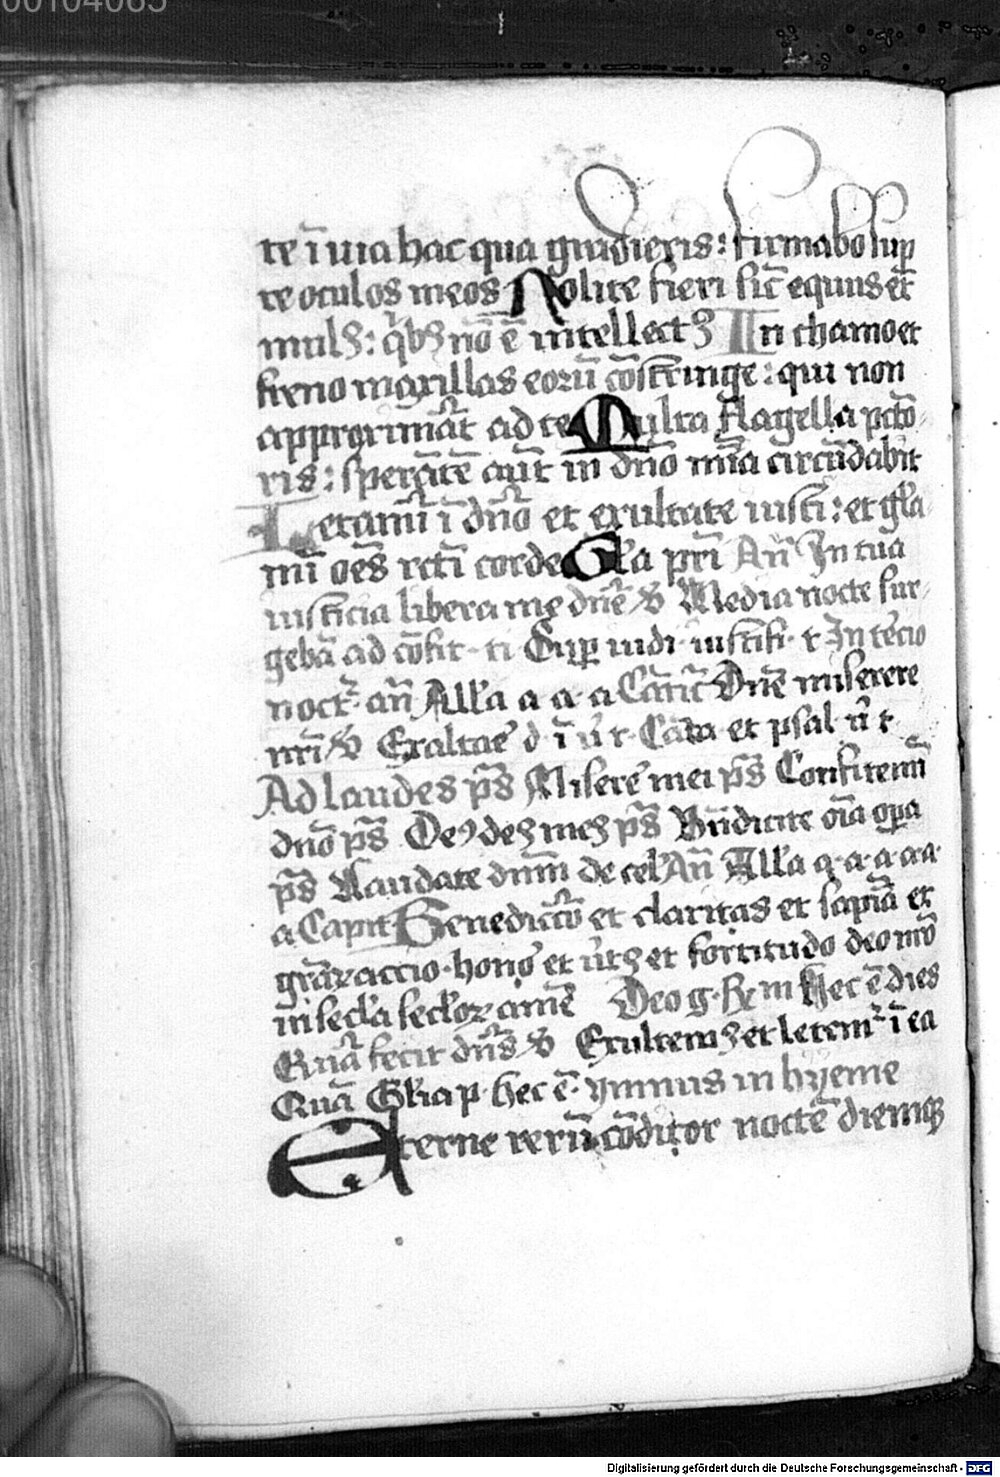 00104065
te ī uia hac qua gradieris: firmabo sup̱
te oculos meos Nolite fieri sic̄ equus et
mulꝰ: qͥbꝰ nō ē intellectꝰ In chamo et
freno maxillas eorū cōstringe: qui non
approximāt ad te Multa flagella pctō-
ris: sperātē aūt in dn̄o mīa circūdabit
Letamī ī dn̄o et exultate iusti: et gl̄a
mī oēs rcti corde Gl̄a pri An̄ In tua
iusticia libera me dn̄e ℣ Media nocte sur-
gebā ad cōfit· ti Sup̱ iudi· iustifi· t In tercio
noct· an̄ All'a a a· a Cātic̄ Dn̄e miserere
nr̄i ℣ Exaltae d ī
Ad laudes ps̄ Misere mei ps̄ Confitemī
dn̄o ps̄ Deꝰ deꝰ meꝰ ps̄ Bn̄dicite oīa oꝑa
ps̄ Laudate dnm̄ de cel' An̄ All'a a· a· a a·a·
a Capit Benedictō et claritas et sapīa et
grāꝝ accio· honoʼ et ūtꝰ et fortitudo deo nrō
in secl'a secl'oꝝ amē Deo g· ℟ m Hec ē dies
Quā fecit dn̄s ℣ Exultemꝰ et letemʳ ī ea
Quā Gl'ia p· hec ē· ymnus in hyeme
Eterne rerū cōditor noctē diemqꝫ
Digitalisierung gefördert durch die Deutsche Forschungsgemeinschaft - DFG